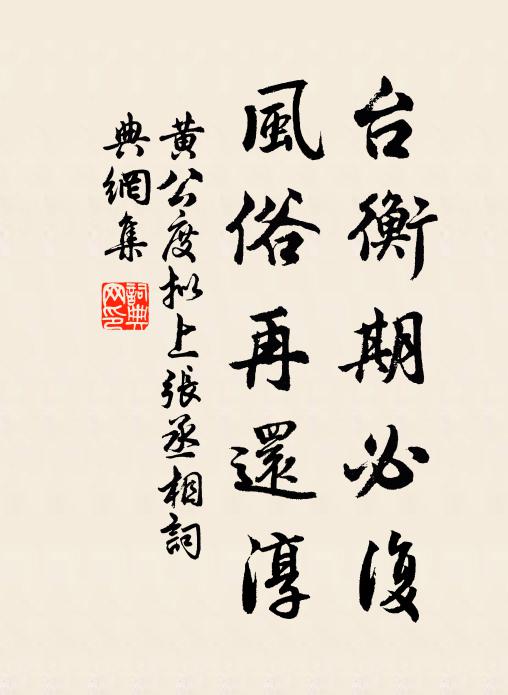 台衡期必復
風俗再還淳
黄公度拟上張丞相詞
典網集
詞典
网印